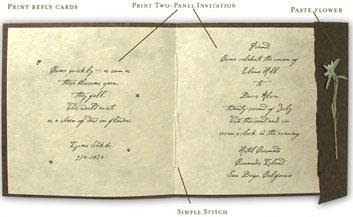 PRINT REPLY CARDS
PRINT TWO-PANEL INVITATION
PASTE FLOWER
Come quickly — as soon as
these blossoms open,
they fall.
This world exists
as a sheen of dew on flowers.
Izumi Shikibu
974-1034
Friends
Come celebrate the union of
Hall
to
Dave
twenty-second of July
Two thousand and six
seven o'clock in the evening
Hotel Coronado
Coronado Island
San Diego, California
SIMPLE STITCH